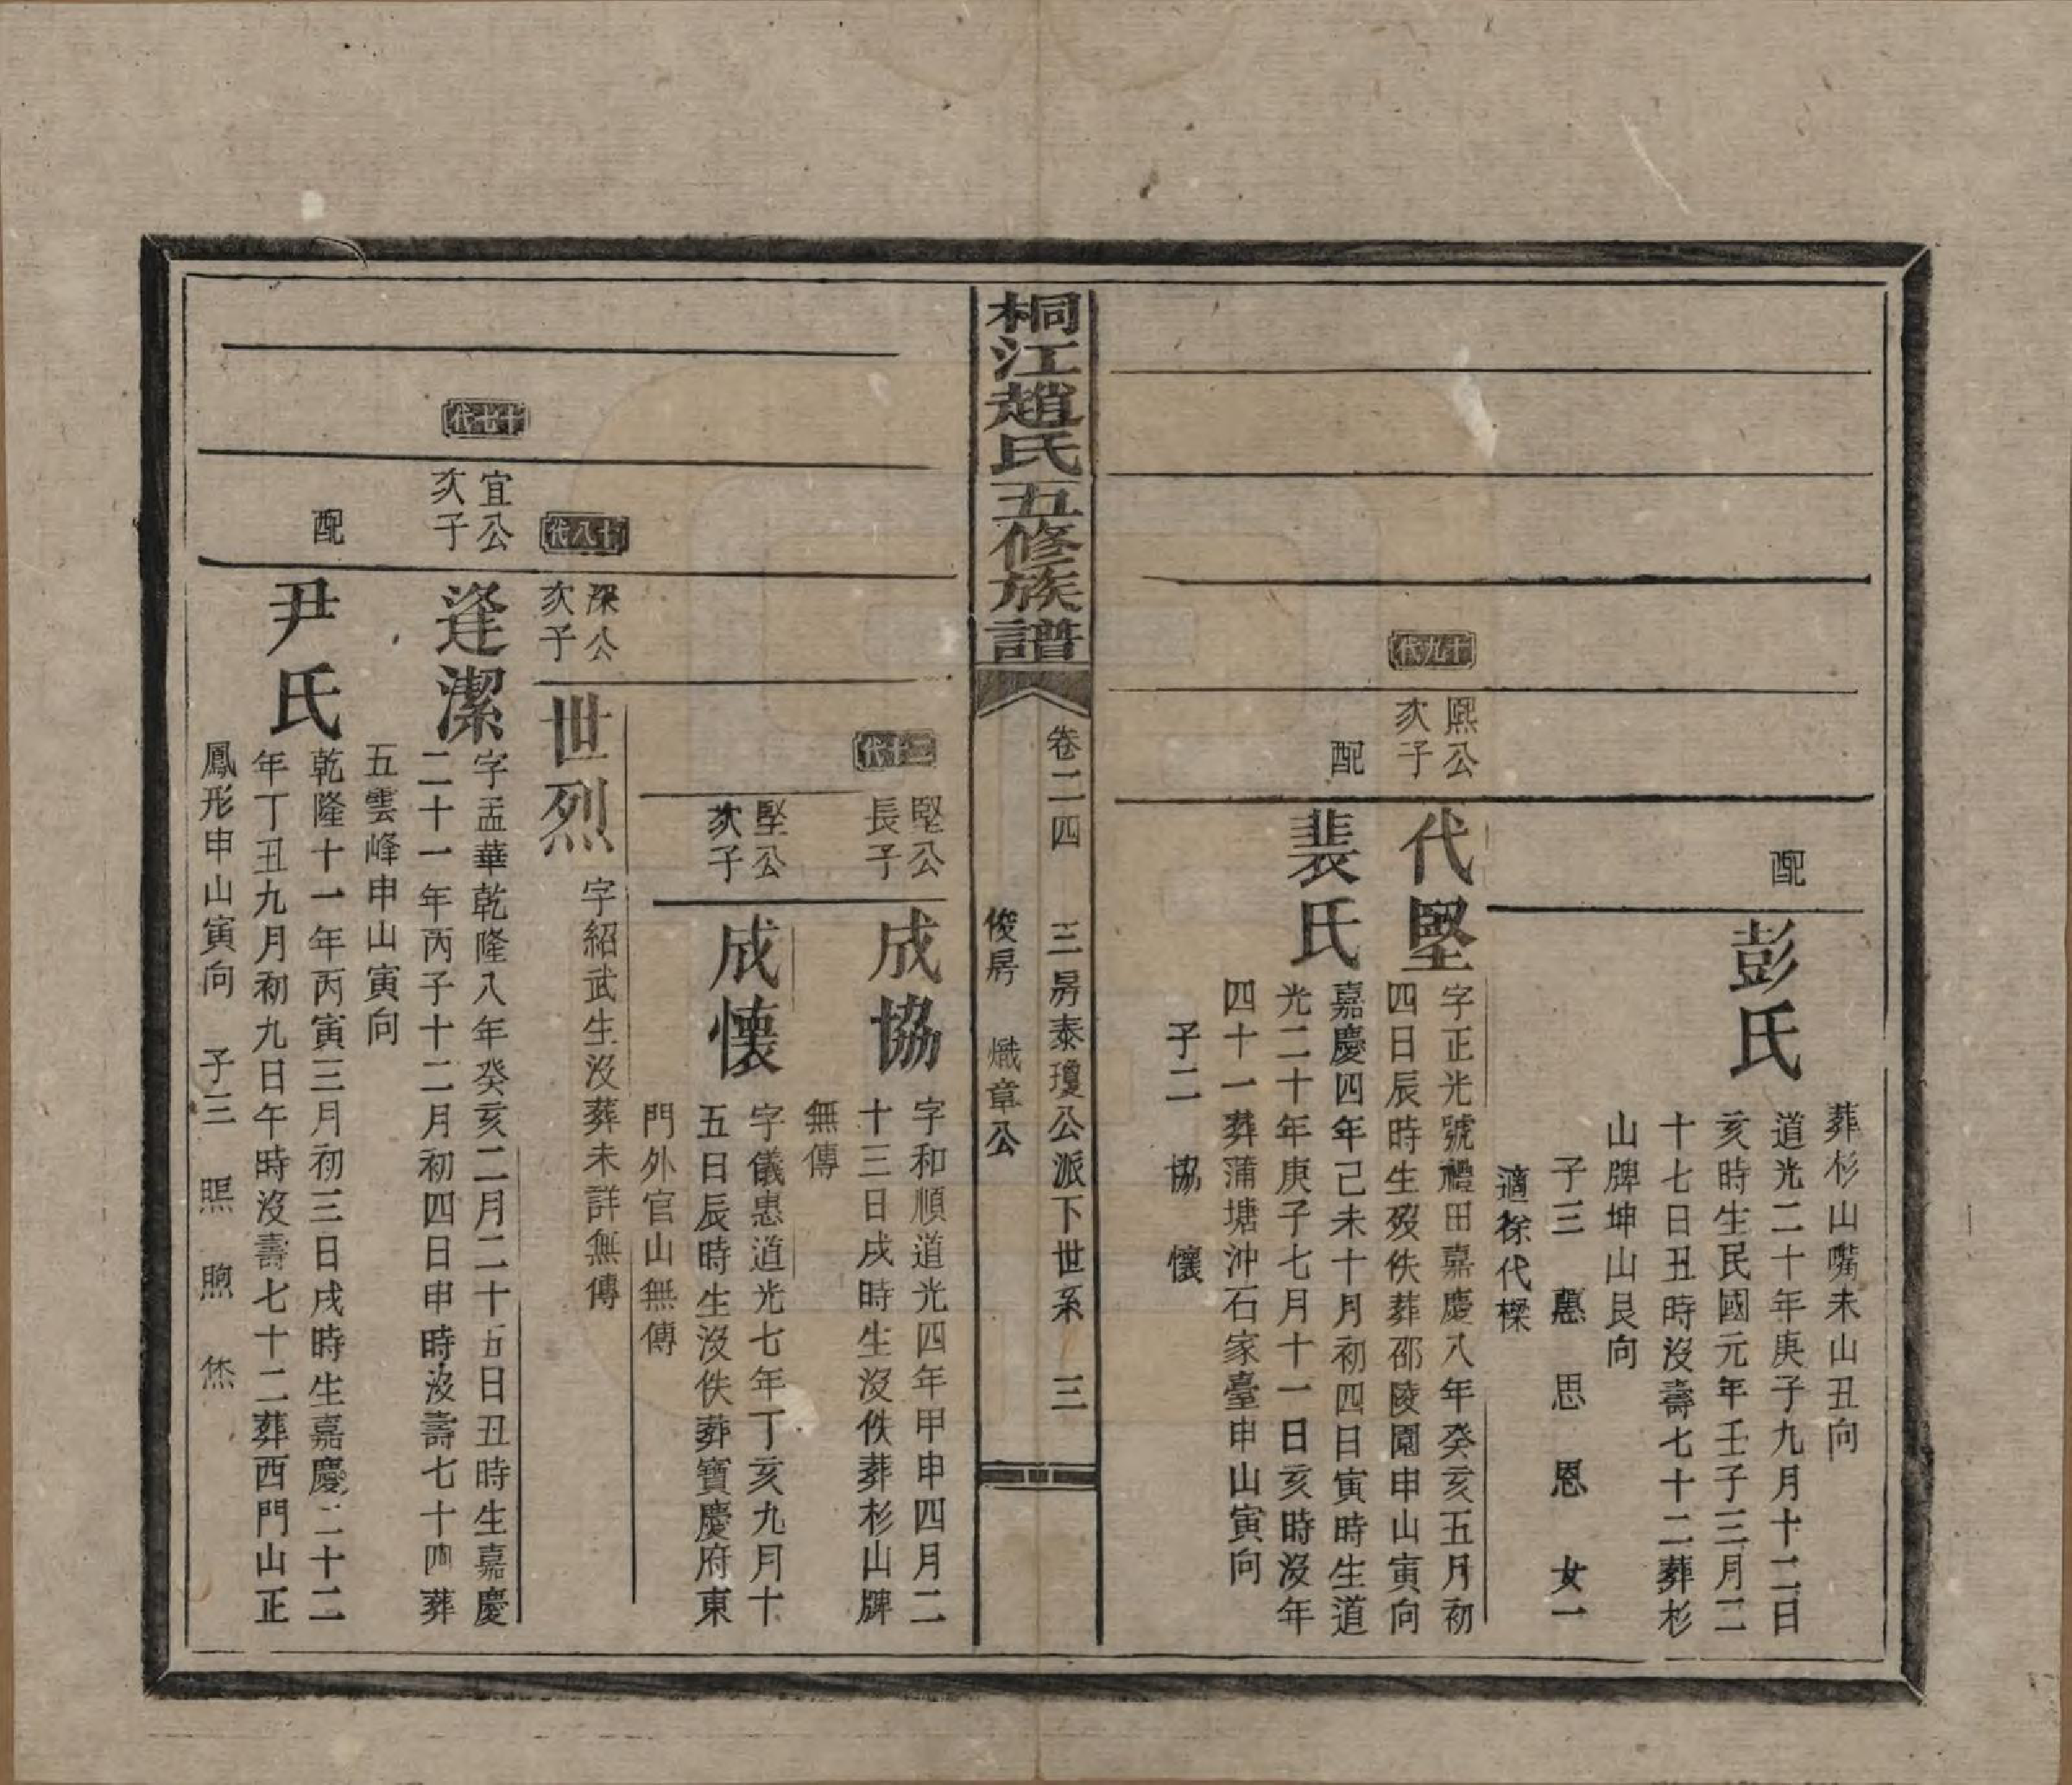 葬杉山嘴未山丑向
配
彭氏
道光二十年庚子九月十二日
亥時生民國元年壬子三月二
十七日丑時沒壽七十二葬杉
山牌坤山艮向
子三 思 恩 女一
適徐代樑
十九代
熙公
次子
代堅
字正光號禮田嘉慶八年癸亥五月初
四日辰時生歿佚葬邵陵園申山寅向
配
裴氏
嘉慶四年己未十月初四日寅時生道
光二十年庚子七月十一日亥時沒年
四十一葬蒲塘沖石家臺申山寅向
子二 協 懷
桐江趙氏五修族譜
卷二四 三房泰瓊公派下世系 三
俊房 熾章公
二十代
堅公
長子
成協
字和順道光四年甲申四月二
十三日戌時生沒佚葬杉山牌
無傳
堅公
次子
成懷
字儀惠道光七年丁亥九月十
五日辰時生沒佚葬寶慶府東
門外官山無傳
十八代
深公
次子
世烈
字紹武生沒葬未詳無傳
十七代
宜公
次子
逢潔
字孟華乾隆八年癸亥二月二十五日丑時生嘉慶
二十一年丙子十二月初四日申時沒壽七十四葬
五雲峰申山寅向
配
尹氏
乾隆十一年丙寅三月初三日戌時生嘉慶二十二
年丁丑九月初九日午時沒壽七十二葬西門山正
鳳形申山寅向 子三 照 煦 烋